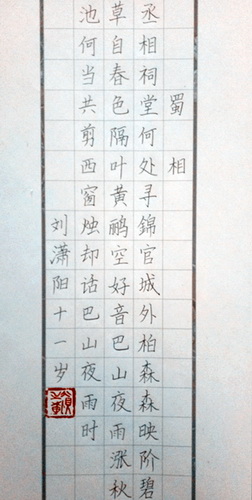 蜀相
丞相祠堂何处寻錦官城外柏森森映阶碧
草自春色隔叶黄鹂空好音巴山夜雨涨秋
池何当共剪西窗烛却话巴山夜雨时
刘潇阳十一岁